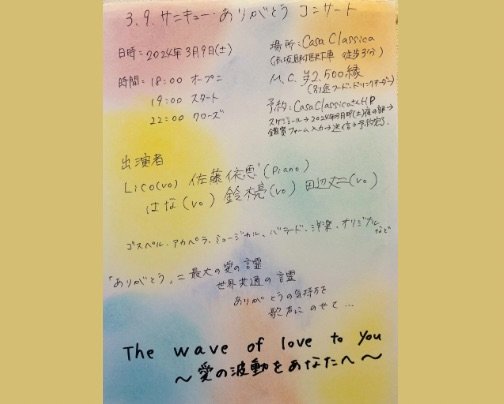 3.9. サンキュー・ありがとう コンサート
日時：2024年3月9日(土)
時間：18:00 オープン
19:00 スタート
22:00 クローズ
場所：Casa Classica
(赤坂見附駅下車 徒歩3分)
M.C. ¥2,500縁
(別途フード・ドリンクオーダー)
予約：Casa ClassicaさんHP
スケジュール→2024年3月9日(土)夜の部→
鑑賞フォーム入力→送信→予約完了.
出演者
Lico(vo) 佐藤依恵(Piano)
はな(vo) 鈴木亮(vo) 田辺丈二(vo)
ゴスペル、アカペラ、ミュージカル、バラード、洋楽、オリジナル など
「ありがとう」= 最大の愛の言霊
世界共通の言霊
ありがとうの気持ちを
歌声に のせて...
The wave of love to You
〜愛の波動をあなたへ〜